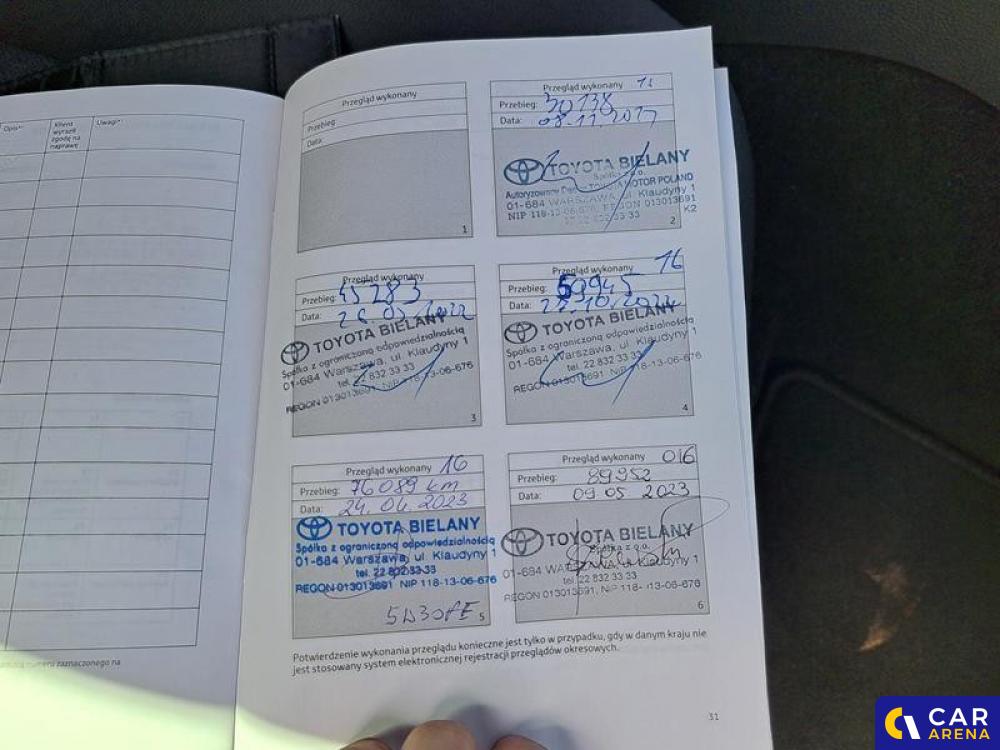 Opis*¹
Klient
wyraził
zgodę na
naprawę
Uwagi*¹
Przegląd wykonany
Przebieg:
Data:
1
Przegląd wykonany
Przebieg: 30138
Data: 08.11.20
TOYOTA BIELANY
Spółka z o.o.
Autoryzowany TOYOTA MOTOR POLAND
01-684 WARSZAWA, ul. Klaudyny 1
NIP 118-13-06-676, REGON 013013691
22 832 33 33
K2
2
Przegląd wykonany
Przebieg: 45283
Data: 26.05.2022
TOYOTA BIELANY
Spółka z ograniczoną odpowiedzialnością
01-684 Warszawa, ul. Klaudyny 1
tel. 22 832 33 33
REGON 013013691 NIP 118-13-06-676
3
Przegląd wykonany 16
Przebieg: 59945
Data: 10.
TOYOTA BIELANY
Spółka z ograniczoną odpowiedzialnością
01-684 Warszawa, ul. Klaudyny 1
tel. 22 832 33 33
REGON 013013691 NIP 118-13-06-676
4
Przegląd wykonany 16
Przebieg: 76089 km
Data: 24.04.2023
TOYOTA BIELANY
Spółka z ograniczoną odpowiedzialnością
01-684 Warszawa, ul. Klaudyny 1
tel. 22 832 33 33
REGON 013013691 NIP 118-13-06-676
5
Przegląd wykonany 016
Przebieg: 89952
Data: 09.05 2023
TOYOTA BIELANY
Spółka z o.o.
01-684 WARSZAWA, ul. Klaudyny 1
tel. 22 832 33 33
REGON 013013691, NIP 118-13-06-676
6
Potwierdzenie wykonania przeglądu konieczne jest tylko w przypadku, gdy w danym kraju nie
jest stosowany system elektronicznej rejestracji przeglądów okresowych.
numeru zaznaczonego na
31
CAR
ARENA